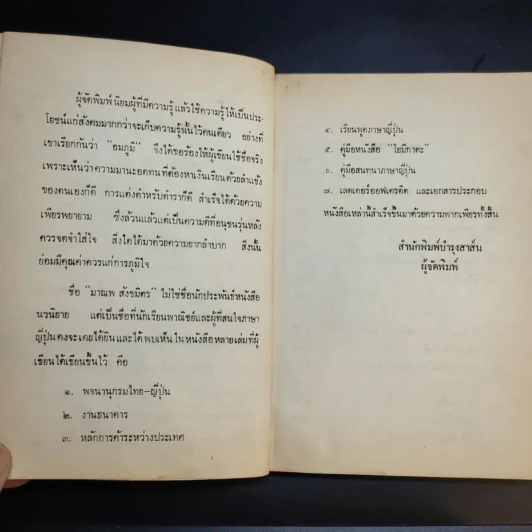 ผู้จัดพิมพ์นิยมผู้ที่มีความรู้ แล้วใช้ความรู้ให้เป็นประ-
โยชน์แก่สังคมมากกว่าจะเก็บความรู้นั้นไว้คนเดียว อย่างที่
เขาเรียกกันว่า "อมภูมิ" จึงได้ขอร้องให้ผู้เขียนใช้ชื่อจริง
เพราะเห็นว่าความมานะอดทนที่ต้องหาเงินเรียนด้วยลำแข้ง
ของตนเองก็ดี การแต่งตำหรับตำราก็ดี สำเร็จได้ด้วยความ
เพียรพยายาม ซึ่งล้วนแล้วแต่เป็นความดีที่อนุชนรุ่นหลัง
ควรจดจำใส่ใจ สิ่งใดได้มาด้วยความยากลำบาก สิ่งนั้น
ย่อมมีคุณค่าควรแก่การภูมิใจ
ชื่อ "มาณพ สังขมิตร" ไม่ใช่ชื่อนักประพันธ์หนังสือ
นวนิยาย แต่เป็นชื่อที่นักเรียนพาณิชย์และผู้ที่สนใจภาษา
ญี่ปุ่นคงจะเคยได้ยินและได้พบเห็นในหนังสือหลายเล่มที่ผู้
เขียนได้เขียนขึ้นไว้ คือ
๑. พจนานุกรมไทย–ญี่ปุ่น
๒. งานธนาคาร
๓. หลักการค้าระหว่างประเทศ
๔. เรียนพูดภาษาญี่ปุ่น
๕. คู่มือหนังสือ "โยมีกาตะ"
๖. คู่มือสนทนาภาษาญี่ปุ่น
๗. เลตเตอร์ออฟเครดิต และเอกสารประกอบ
หนังสือเหล่านี้สำเร็จขึ้นมาด้วยความพากเพียรทั้งสิ้น
สำนักพิมพ์บำรุงสาส์น
ผู้จัดพิมพ์